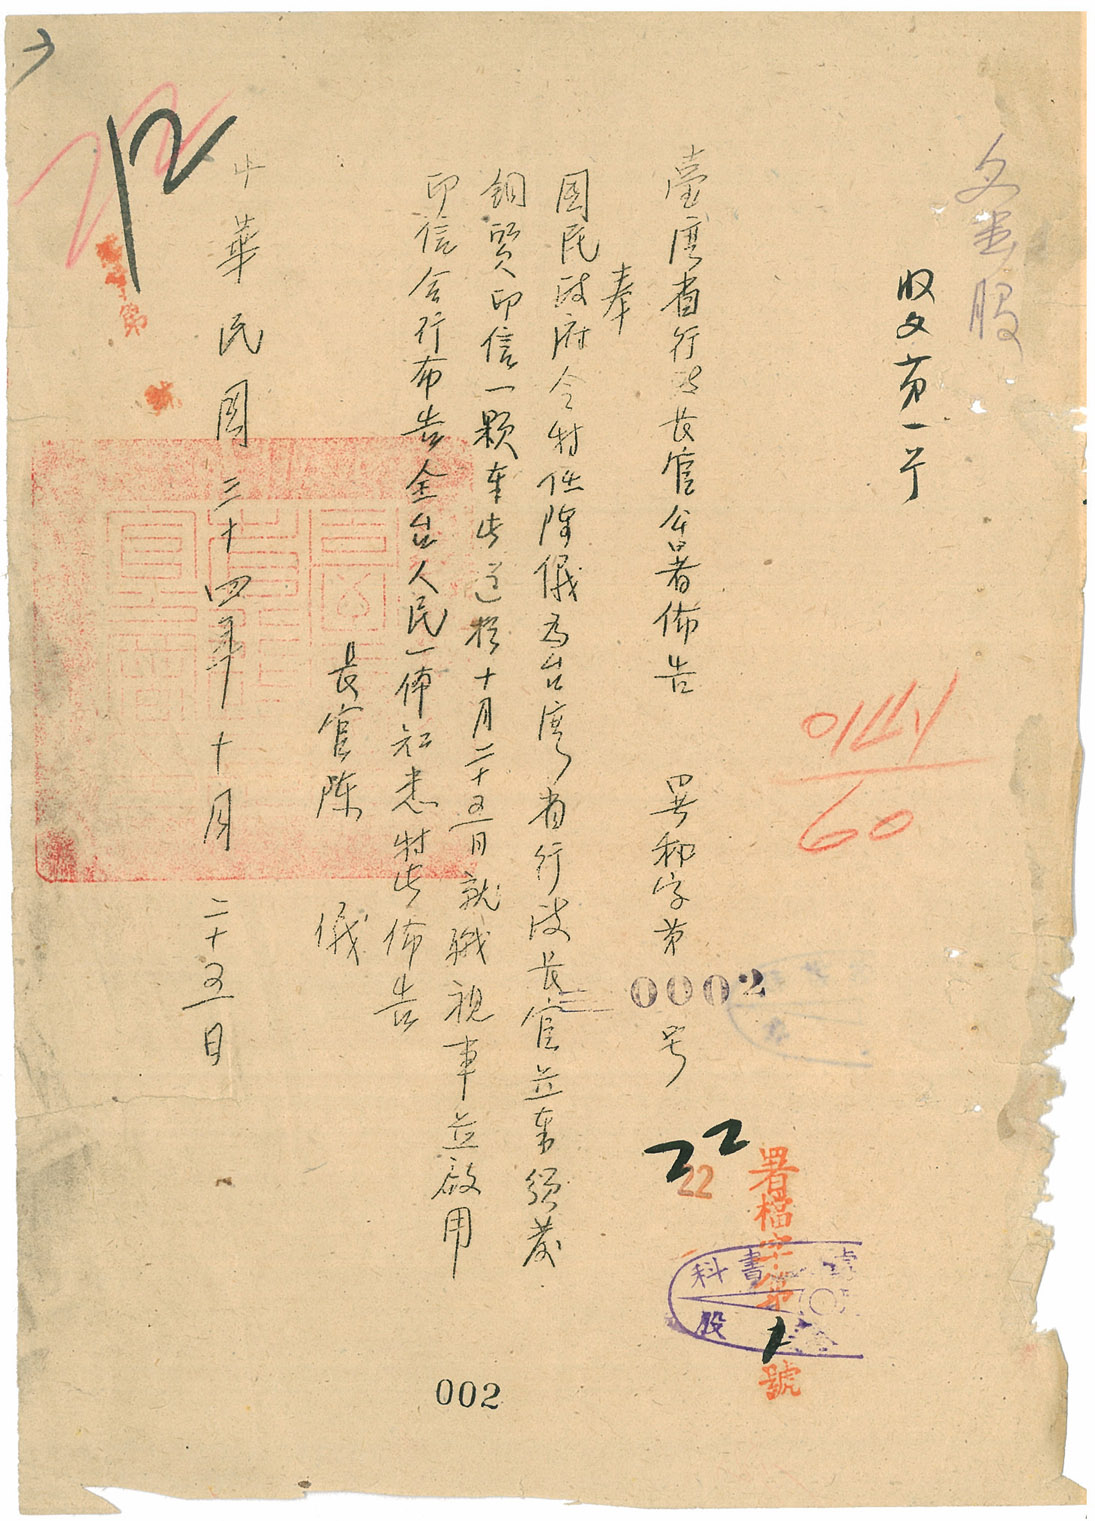 文書股
收文第一号
臺灣省行政長官公署佈告 署秘字第0002号
奉
国民政府令特任陳儀為台灣省行政長官並奉頒發
銅質印信一顆奉此遵於十月二十五日就職視事並啟用
印信合行布告全台人民一体知悉特此佈告
長官陈 儀
中華民国三十四年十月二十五日
0144
60
22
22
署檔字第1號
科書
股
002
12
第
號